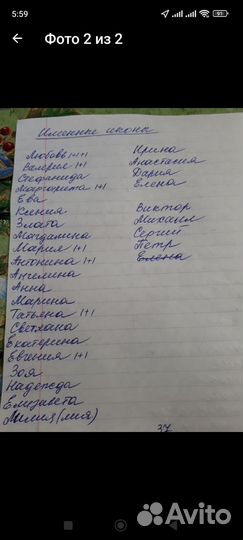 5:59
91
Фото 2 из 2
Именные иконы
Любовь 1+1+1
Валерия 1+1
Стефанида
Маргарита 1+1
Ева
Ксения
Злата
Магдалина
Мария 1+1
Антонина 1+1
Ангелина
Анна
Марина
Татьяна 1+1
Светлана
Екатерина
Евгения 1+1
Зоя
Надежда
Елизавета
(лия)
Ирина
Анастасия
Дария
Елена
Виктор
Михаил
Сергий
Петр
Елена
37
Avito